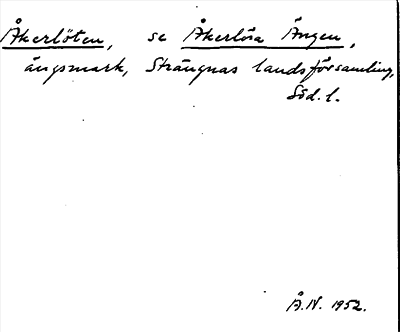 Åkerlöten, se Åkerlösa Ängen,
ängsmark, Strängnäs landsförsamling,
Söd. l.
Å.N. 1952.